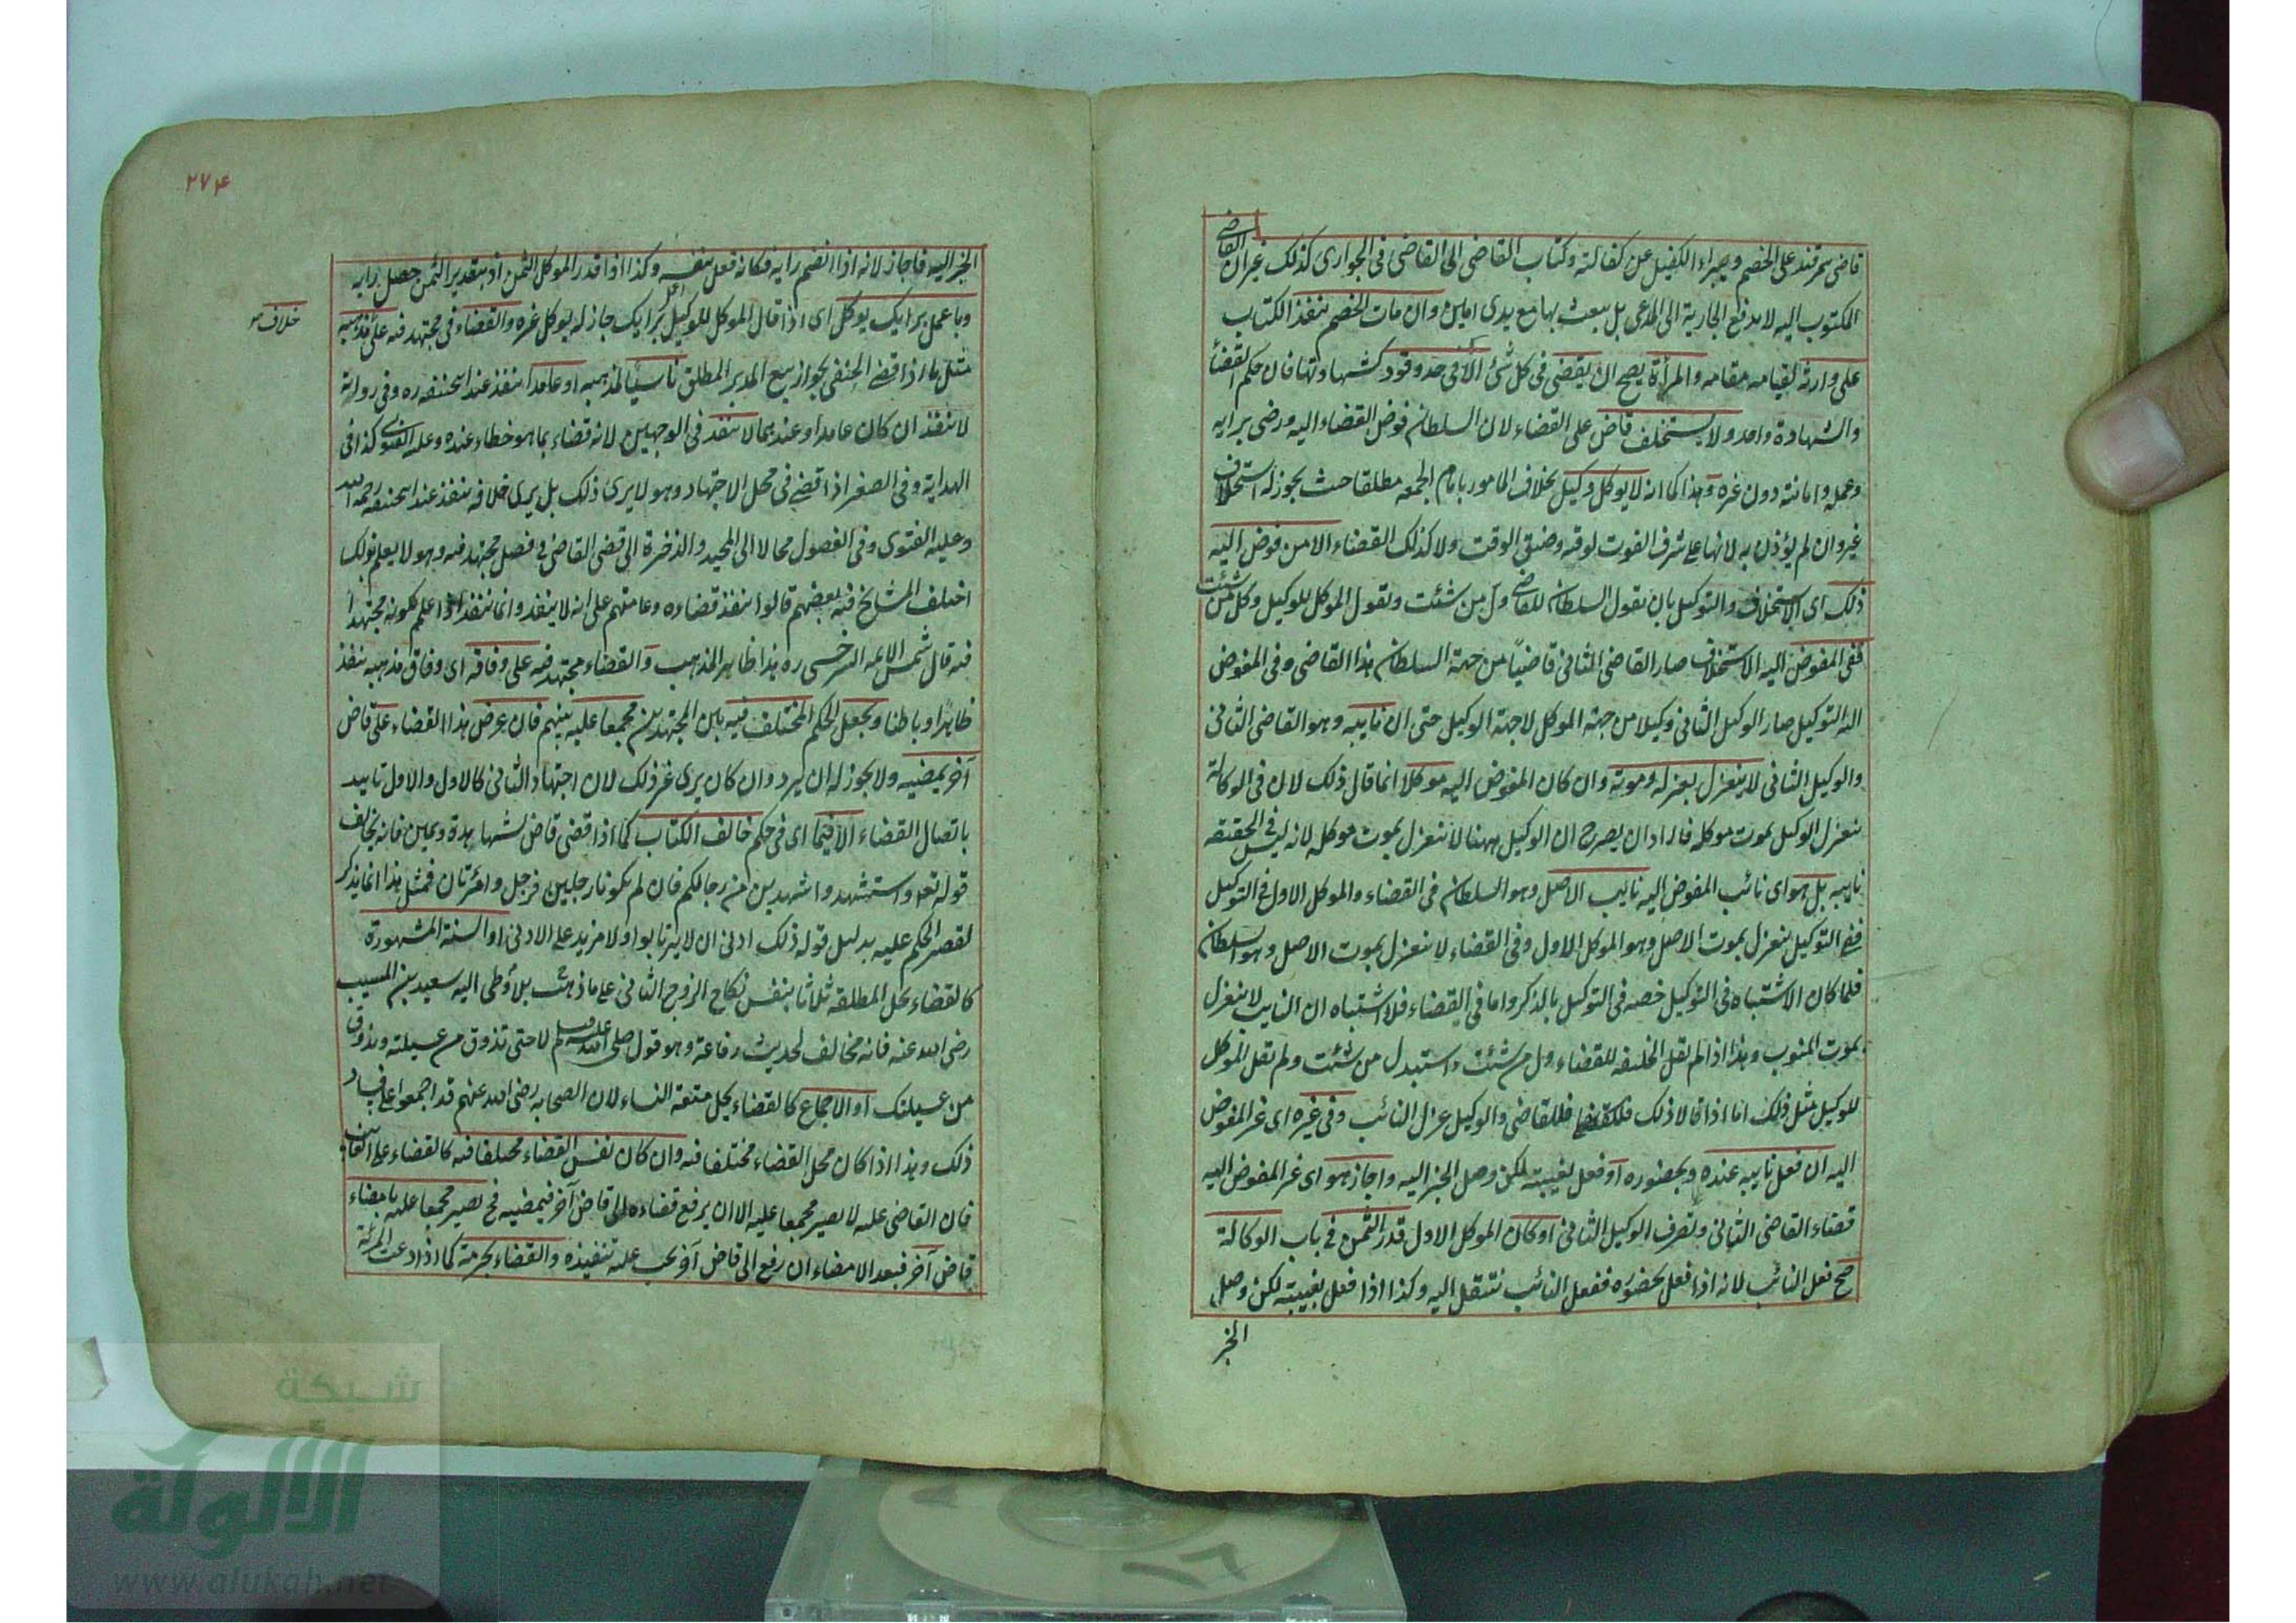 قاضى سمرقند على الخصم ويبراء الكفيل عن كفالته وكتاب القاضى الى القاضى فى الجوارى كذلك غير ان القاضى
المكتوب اليه لا يدفع الجارية الى المدعى بل يبعث بها مع يدى امين وان مات الخصم ينفذ الكتاب
على وارثه لقيامه مقامه والمرأة يصح ان يقضى فى كل شئ الا فى حد وقود كشهادتها فان حكم القضأ
والشهادة واحد ولا يستخلف قاض على القضاء لان السلطان فوض القضاء اليه ورضى برايه
وعمله وامانته دون غيره وهذا كما انه لا يوكل وكيل بخلاف المامور بامام الجمعه مطلقا حيث يجوز له استخلاف
غيره وان لم يؤذن به لانها على شرف الفوت لوقته وضيق الوقت ولا كذلك القضاء الا من فوض اليه
ذلك اى الاستخلاف والتوكيل بان يقول السلطان للقاضى ول من شئت ويقول الموكل للوكيل وكل من شئت
ففى المفوض اليه الاستخلاف صار القاضى الثانى قاضياً من جهة السلطان هذا القاضى وفى المفوض
اليه التوكيل صار الوكيل الثانى وكيلا من جهة الموكل لا جهة الوكيل حتى ان نايبه وهو القاضى الثانى
والوكيل الثانى لا ينعزل بعزله وموته وان كان المفوض اليه موكلا انما قال ذلك لان فى الوكالة
ينعزل الوكيل بموت موكله فاراد ان يصرح ان الوكيل ههنا لا ينعزل بموت موكله لانه ليس فى الحقيقه
نايبه بل هو اى نائب المفوض اليه نايب الاصل وهو السلطان فى القضاء والموكل الاول فى التوكيل
ففى التوكيل ينعزل بموت الاصل وهو الموكل الاول وفى القضاء لا ينعزل بموت الاصل وهو السلطان
فلما كان الاشتباه فى التوكيل خصه فى التوكيل بالذكر واما فى القضاء فلا اشتباه ان النايب لا ينعزل
بموت المنوب وهذا اذا لم يقل الخليفه للقضاء ول من شئت واستبدل من شئت ولم يقل الموكل
للوكيل مثل ذلك اما اذا قالا ذلك فللقاضى والوكيل عزل النائب وفى غيره اى غير المفوض
اليه ان فعل نايبه عنده وبحضوره او فعل بغيبته لكن وصل الخبر اليه واجاز هو اى غير المفوض اليه
قضاء القاضى الثانى وتصرف الوكيل الثانى او كان الموكل الاول قدر الثمن فى باب الوكالة
صح فعل النائب لانه اذا فعل بحضوره ففعل النائب ينتقل اليه وكذا اذا فعل بغيبته لكن وصل
الخبر
٢٧۴
الخبر اليه فاجاز لانه اذا انضم رايه فكانه فعل بنفسه وكذا اذا قدر الموكل الثمن اذ بتقدير الثمن حصل رايه
وباعمل برايك يوكل اى اذا قال الموكل للوكيل اعمل برايك جاز له ليوكل غيره والقضاء فى مجتهد فيه على مذهبه
خلاف
مثل ما اذا قضى الحنفى بجواز بيع المدبر المطلق ناسيا لمذهبه او عامدا ينفذ عند ابيحنيفه ره وفى رواية
لا ينفذ ان كان عامدا وعندهما لا ينفذ فى الوجهين لانه قضاء بما هو خطاء عنده وعليه الفتوى كذا فى
الهداية وفى الصغر اذا قضى فى محل الاجتهاد وهو لا يرى ذلك بل يرى خلافه ينفذ عند ابيحنيفه رحمه الله
وعليه الفتوى وفى الفصول محالا الى المحيد والذخيرة الى قضى القاضى فى فصل مجتهد فيه وهو لا يعلم بذلك
اختلف المشايخ فيه بعضهم قالوا ينفذ قضاءه وعامتهم على انه لا ينفذ وانما ينفذ اذا علم بكونه مجتهدا
فيه قال شمس الائمه السرخسى ره هذا ظاهر المذهب والقضاء مجتهد فيه على وفاقه اى وفاق مذهبه ينفذ
ظاهرا وباطنا ويجعل الحكم المختلف فيه بين المجتهدين مجمعا عليه بينهم فان عرض هذا القضاء على قاض
آخر يمضيه ولا يجوز له ان يرد وان كان يرى غير ذلك لان اجتهاد الثانى كالاول والاول تايد
باتصال القضاء الا فيما اى فى حكم خالف الكتاب كما اذا قضى قاض بشهاهدة ويمين فانه يخالف
قوله تعه واستشهدوا شهيدين من رجالكم فان لم يكونا رجلين فرجل وامرئتان فمثل هذا انما يذكر
لقصر الحكم عليه بدليل قوله ذلك ادنى ان لا يرتابوا ولا مزيد على الادنى او السنة المشهورة
كالقضاء بحل المطلقه ثلاثا بنفس نكاح الزوج الثانى على ما ذهب بلا وطى اليه سعيد بن المسيب
رضى الله عنه فانه مخالف لحديث رفاعة وهو قول صلى الله عليه وسلم لا حتى تذوق من عسيلته ويذوق
من عسيلتك او الاجماع كالقضاء بحل متعة النساء لان الصحابه رضى الله عنهم قد اجمعوا على فساد
ذلك وهذا اذا كان محل القضاء مختلفا فيه وان كان نفس القضاء مختلفا فيه كالقضاء على الغائب
فان القاضى عليه لا يصير مجمعا عليه الا ان يرفع قضاءه الى قاض آخر فيمضيه فح يصير مجمعا عليه بامضاء
قاض آخر فبعد الامضاء ان رفع الى قاض آخر يجب عليه تنفيذه والقضاء بحرمة كما اذا ادعت المرئة
شبكة
الألوكة
www.alukah.net